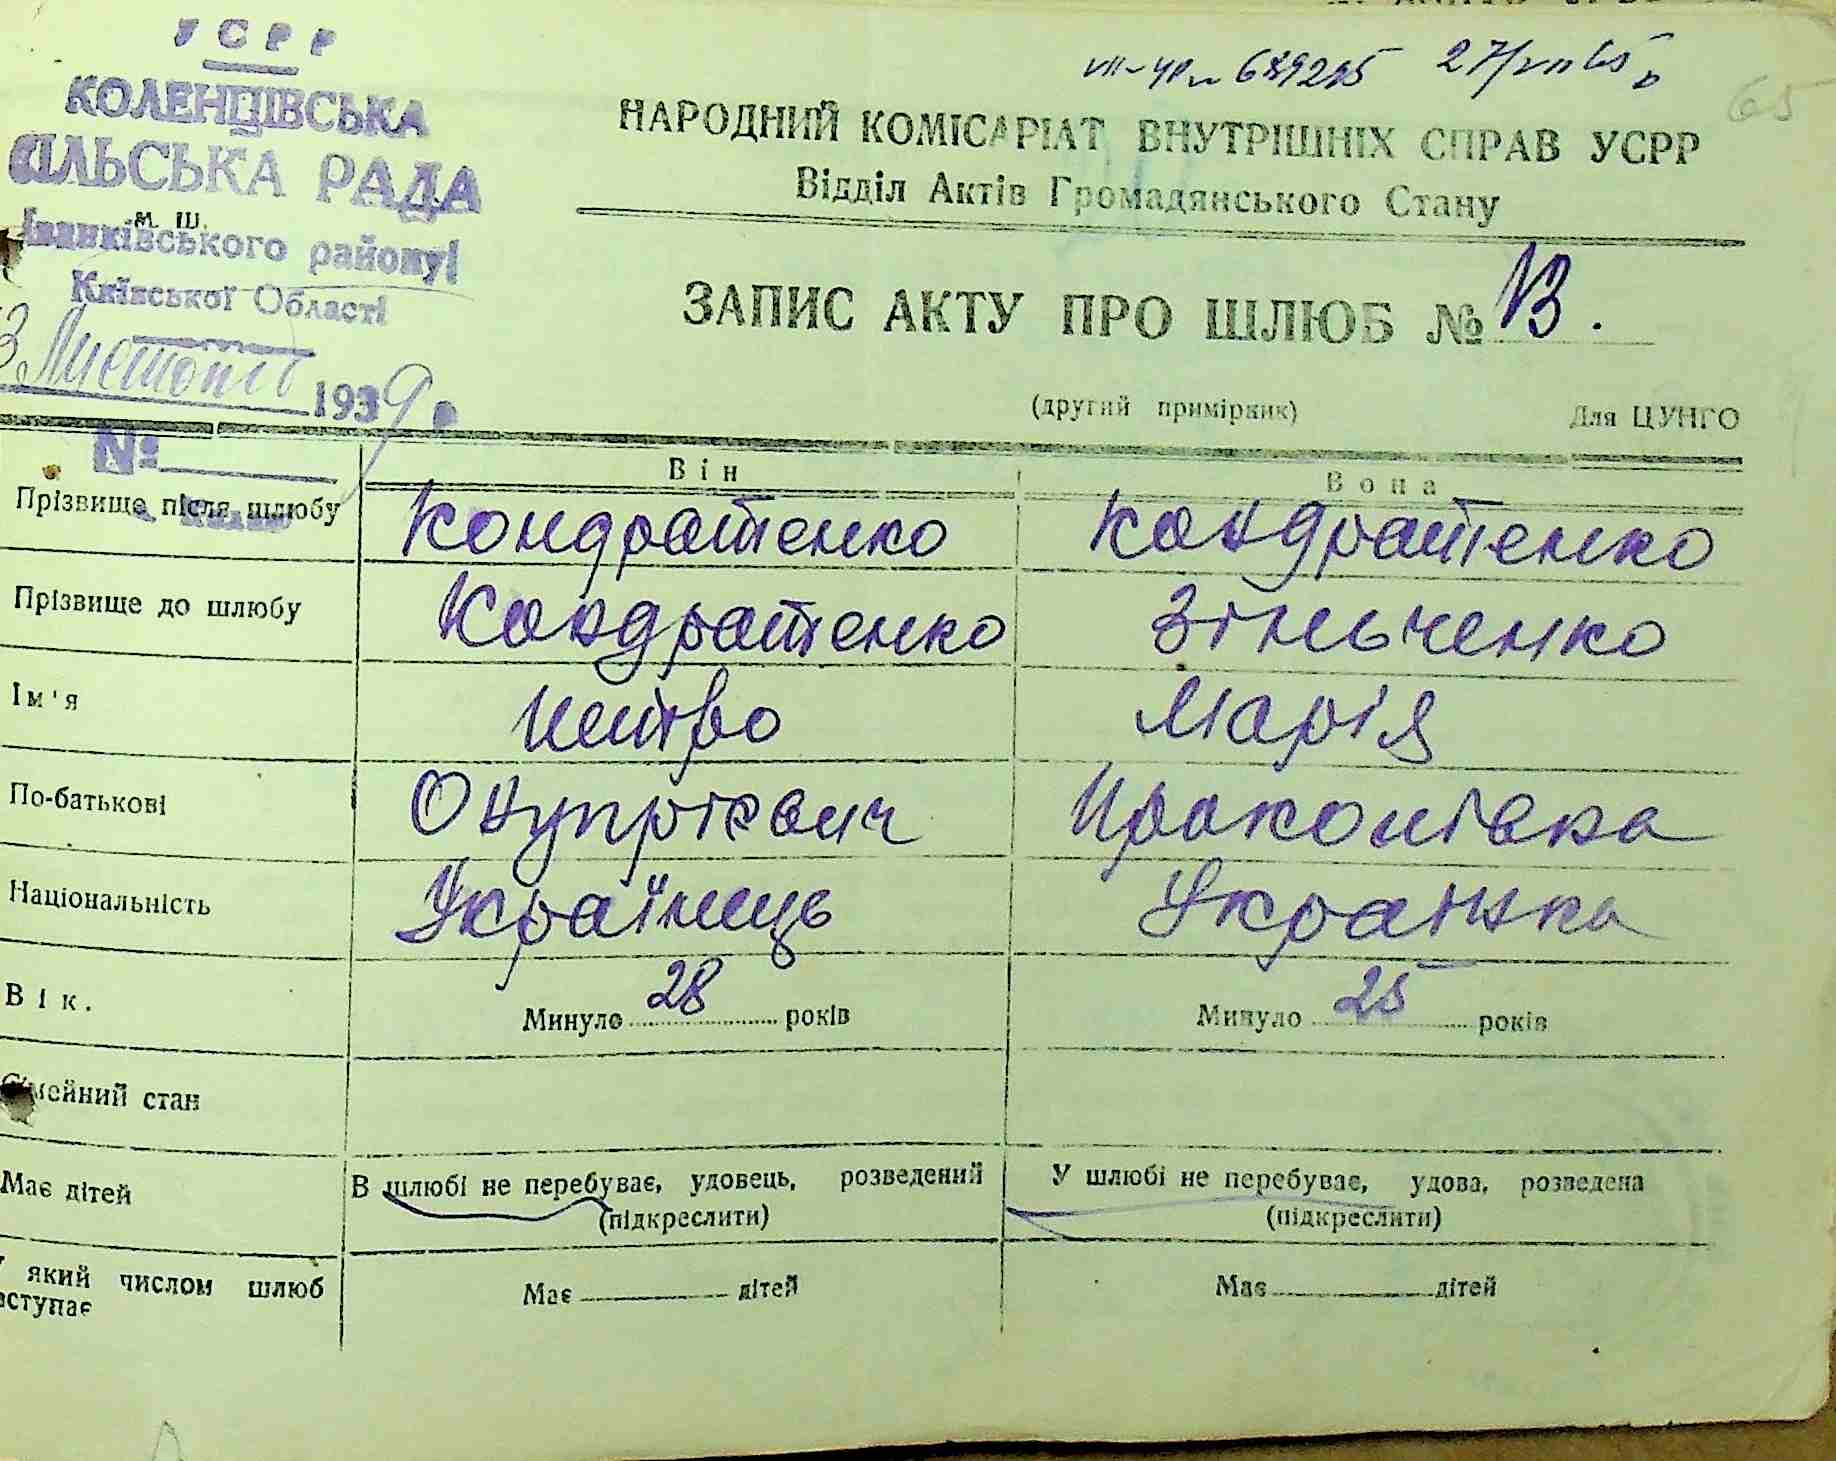 УСРР
КОЛЕНЦІВСЬКА
СІЛЬСЬКА РАДА
М. Ш.
Іванківського району
Київської Області
3 Листопад 1939 р.
№
27/VII 65
65
НАРОДНИЙ КОМІСАРІАТ ВНУТРІШНІХ СПРАВ УСРР
Відділ Актів Громадянського Стану
ЗАПИС АКТУ ПРО ШЛЮБ № 13.
(другий примірник) Для ЦУНГО
Він Вона
Прізвище після шлюбу Кондратенко Кондратенко
Прізвище до шлюбу Кондратенко Зінченко
Ім'я Петро Марія
По-батькові Онупрієвич Прокопівна
Національність Українець Українка
Вік. Минуло 28 років Минуло 25 років
Сімейний стан
Має дітей В шлюбі не перебуває, удовець, розведений У шлюбі не перебуває, удова, розведена
(підкреслити) (підкреслити)
який числом шлюб Має дітей Має дітей
вступає